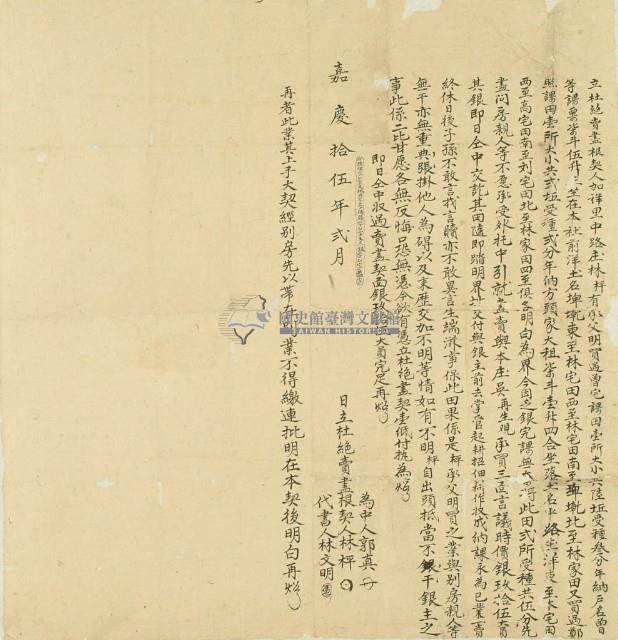 立杜絕賣盡根契人加祥里中路庄林枰有承父明買過曾宅課田壹所大小共陸坵受種叁分年納
等課粟柒斗伍升坐在本社前洋土名埤墘東至林宅田西至林宅田南至埤墘北至林家田又買過鄭
課田壹所大小共弍坵受種弍分年納方頭家大租柒斗壹升四合坐落土名中路洋東至宅田
西至高宅田南至刘宅田北至林家田四至俱各明白為界今因乏銀完課無此田弍所受種共伍分先
盡问房親人等不愿承受外托中引就盡賣與本庄吳再生觀承買三面言議時價銀玖拾伍大員
其銀即日仝中交訖其田隨即踏明界址交付與銀主前去掌管起耕招佃耕作收成納課永為己業一賣
終休日後子孫不敢言找言贖亦不敢異言生端滋事保此田果係是枰承父明買之業與别房親人等
無干亦無重典張掛他人為碍以及来歷交加不明等情如有不明枰自出頭抵當不干銀主之
事此係二比甘愿各無反悔口恐無憑今欲有憑立杜絕盡契壹紙付执為炤
即日仝中收過賣盡契面銀玖拾大員完足再炤
嘉慶拾伍年弍月 日立杜絕賣盡根契人林枰
為中人郭真
代書人林文明
再者此業其上手大契經别房先以帶在業不得繳連批明在本契後明白再炤
國史館臺灣文獻館
TAIWAN HISTORICA